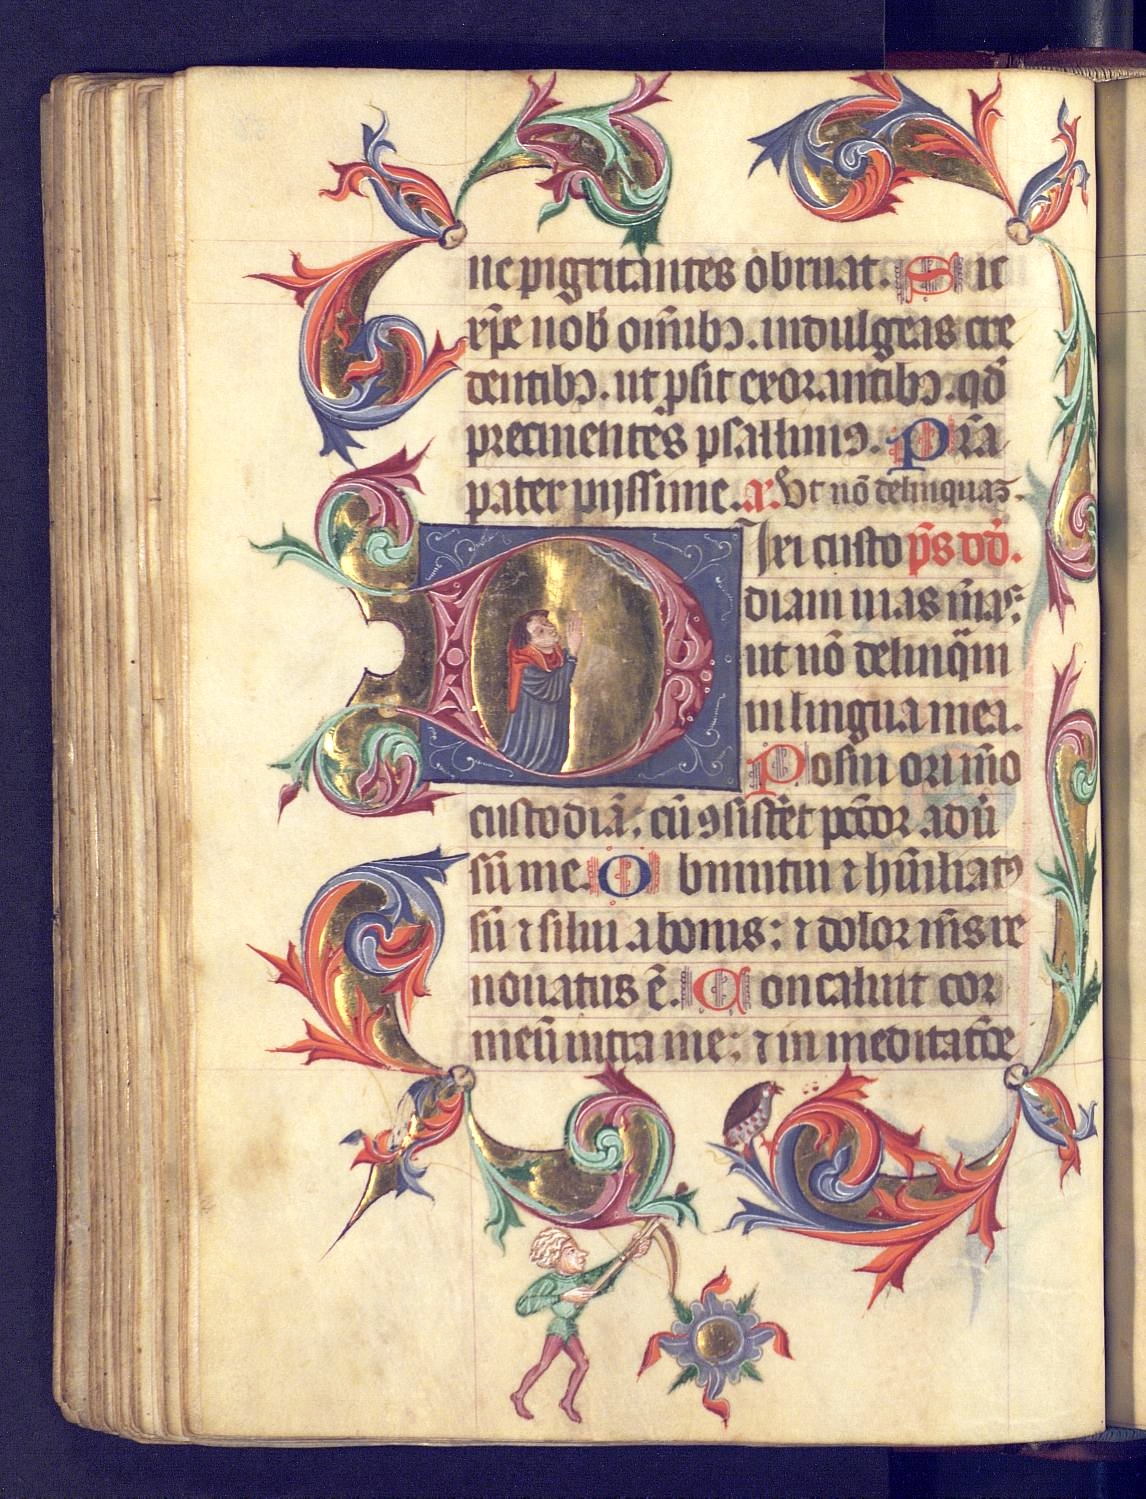 ne pigritantes obruat. Sic
xp̄e nob̄ om̄ibꝫ. indulgeas cre
dentibꝫ. ut ꝓsit exorantibꝫ. qd̄
precinentes psallimꝰ. Pr̄a
pater pijssime. a. Ut nō delinquaꝫ.
Dixi custo ps̄ dd̄.
diam uias m̄as:
ut nō delinq̄m
in lingua mea.
Posui ori m̄o
custodiā: cū ꝯsistēt pcc̄or adū
sū me. Obmutui ⁊ hūiliatꝰ
sū ⁊ silui a bonis: ⁊ dolor m̄s re
nouatus ē. Concaluit cor
meū intra me: ⁊ in meditat̄oe